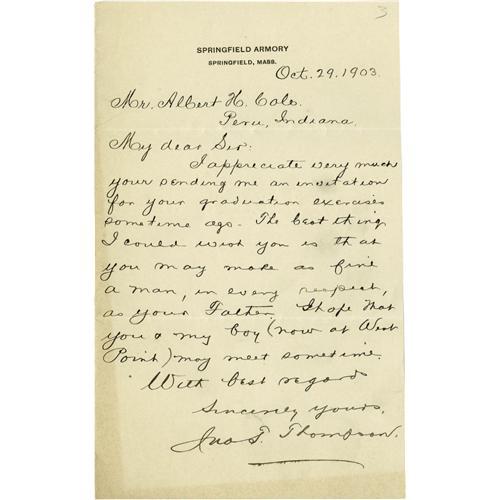 3
SPRINGFIELD ARMORY
SPRINGFIELD, MASS.
Oct. 29, 1903.
Mr. Albert H. Cole.
Peru, Indiana.
My dear Sir:
I appreciate very much
your sending me an invitation
for your graduation exercises
sometime ago. The best thing
I could wish you is that
you may make as fine
a man, in every respect,
as your Father. I hope that
you & my boy (now at West
Point) may meet sometime.
With best regards
Sincerely yours,
Jno. T. Thompson.